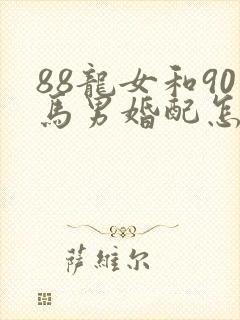 88龍女和90
馬男婚配怎
萨維尔